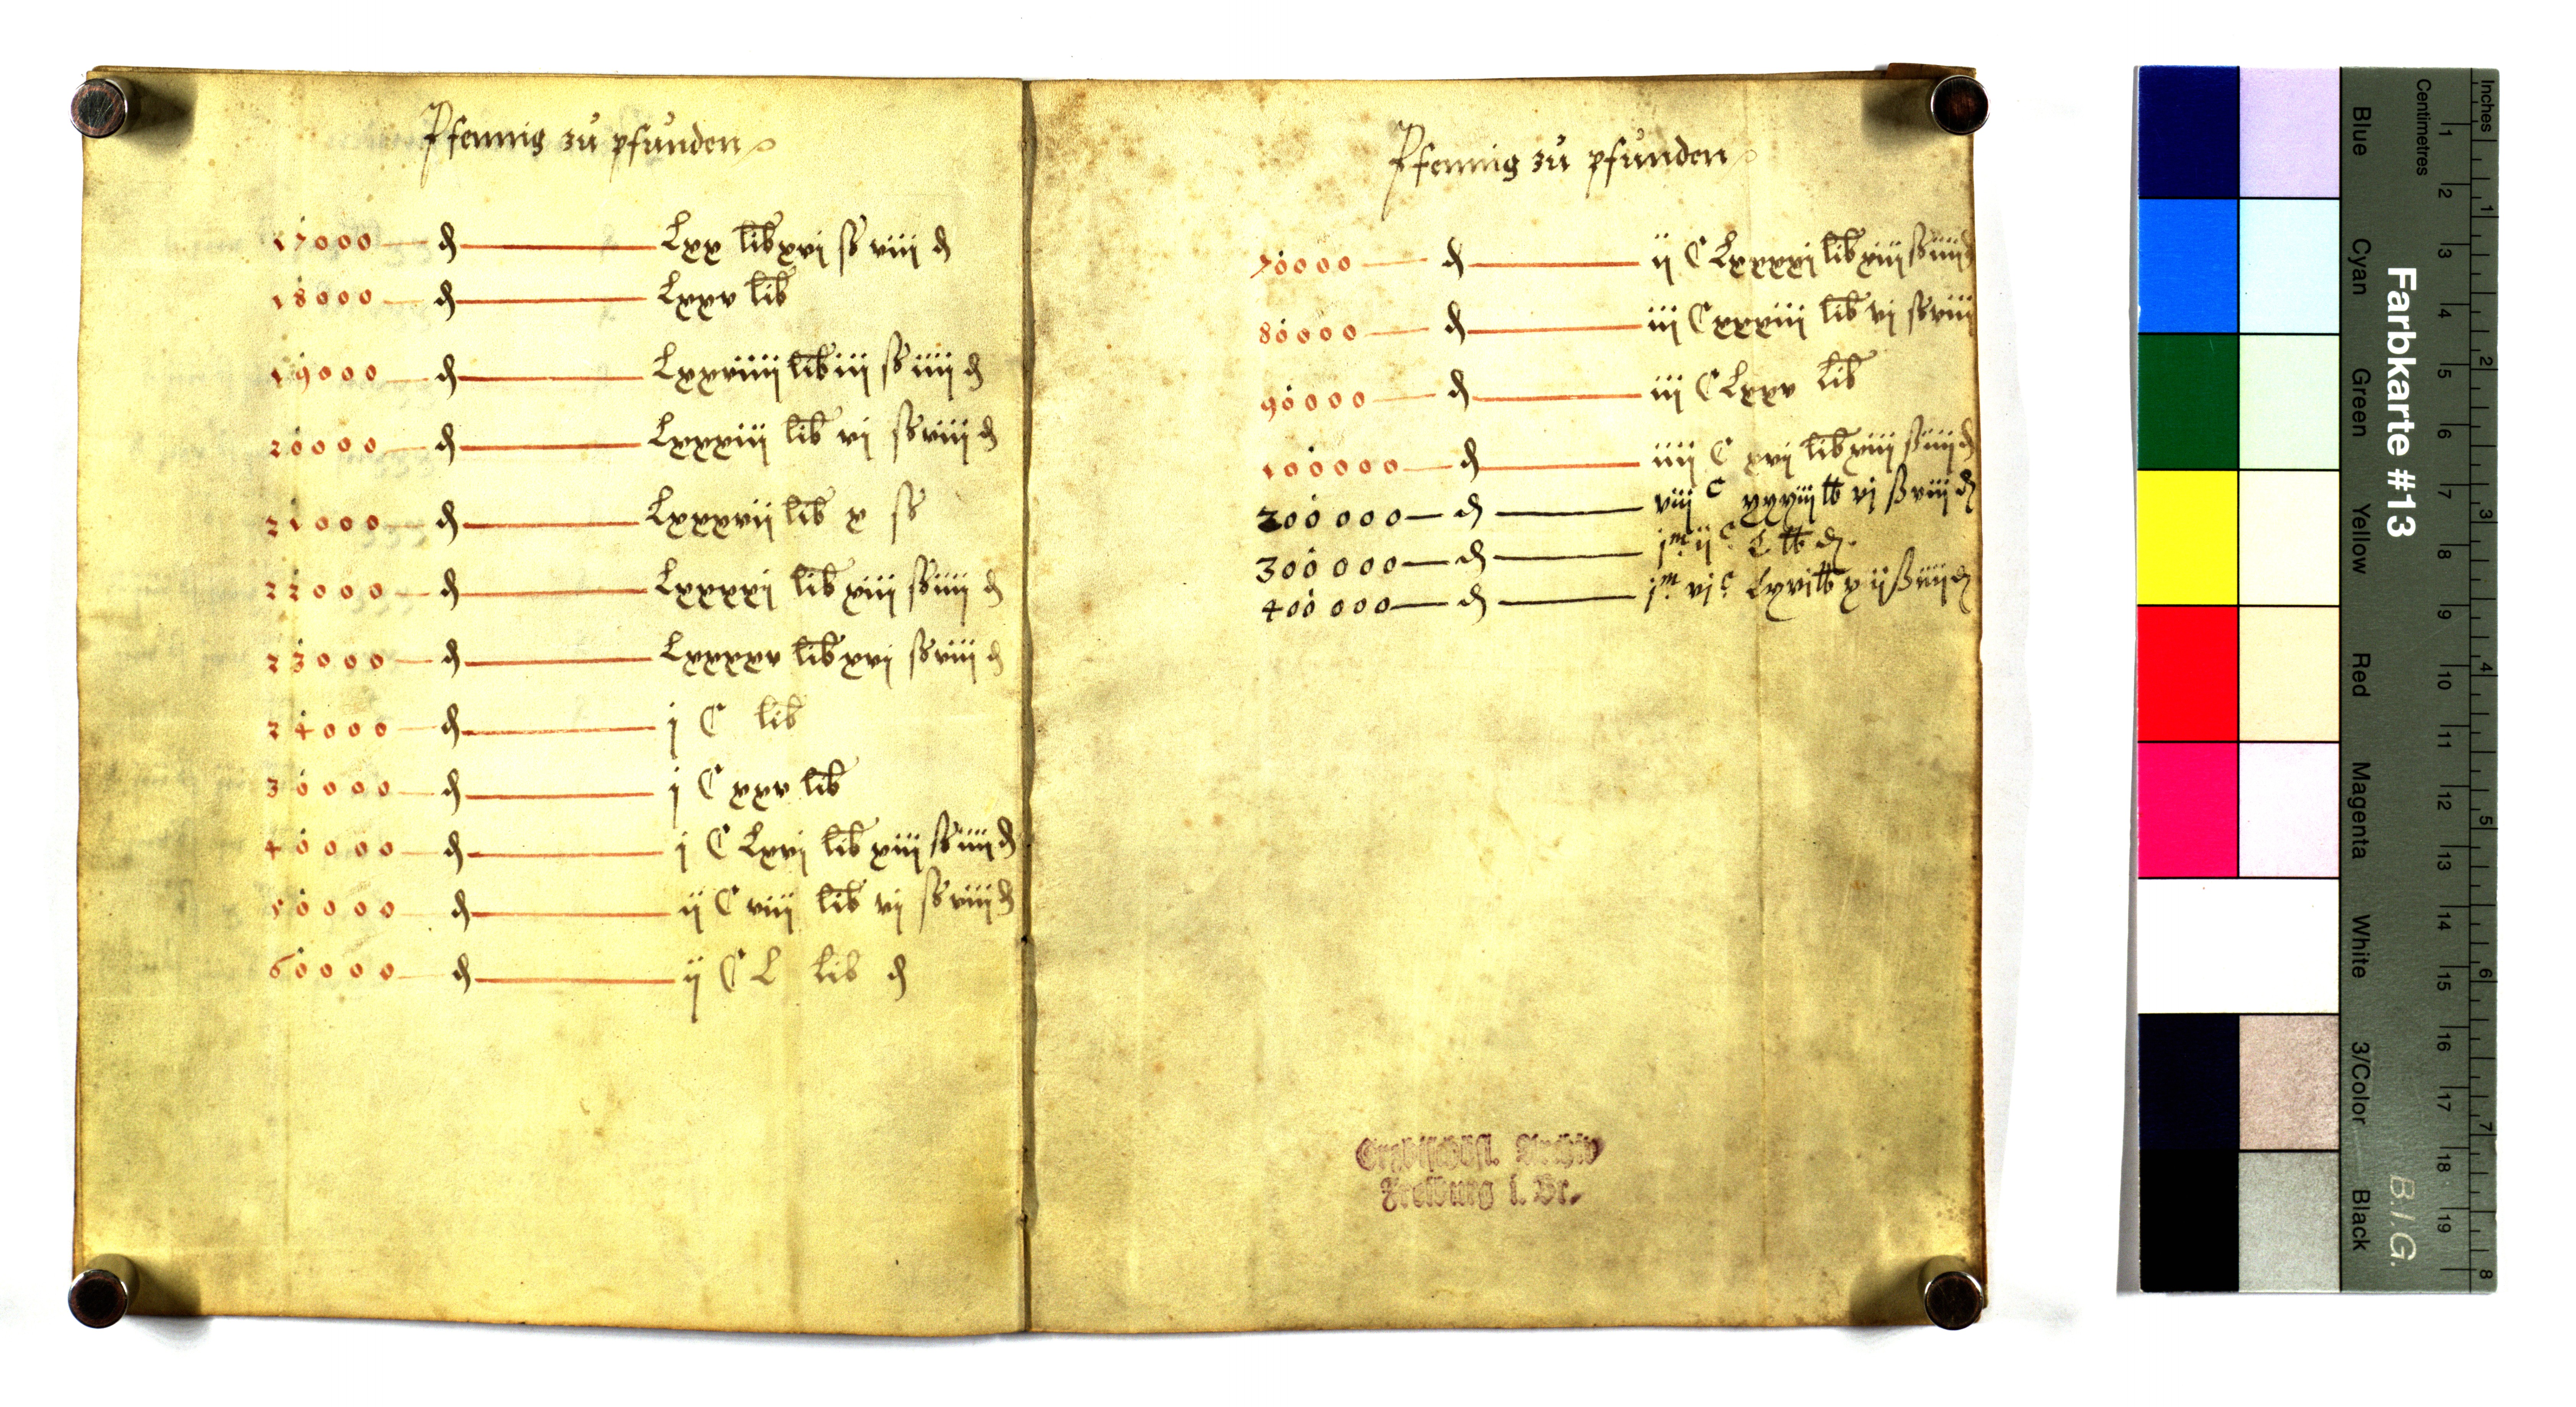 Pfennig zů pfunden
17000 — ₰ — Lxx lib xvj ß viij ₰
18000 — ₰ — Lxxv lib
19000 — ₰ — Lxxviiij lib iij ß iiij ₰
20000 — ₰ — Lxxxiij lib vj ß viij ₰
21000 — ₰ — Lxxxvij lib x ß
22000 — ₰ — Lxxxxj lib xiij ß iiij ₰
23000 — ₰ — Lxxxxv lib xvj ß viij ₰
24000 — ₰ — j C lib
30000 — ₰ — j C xxv lib
40000 — ₰ — j C Lxvj lib xiij ß iiij ₰
50000 — ₰ — ij C viij lib vj ß viij ₰
60000 — ₰ — ij C L lib ₰
Pfennig zů pfunden
70000 — ₰ — ij C Lxxxxj lib xiij ß iiij ₰
80000 — ₰ — iij C xxxiij lib vj ß viij
90000 — ₰ — iij C Lxxv lib
100000 — ₰ — iiij C xvj lib xiij ß iiij ₰
200000 — ₰ — viij C xxxiij ℔ vj ß viij ₰
300000 — ₰ — j m ij c L ℔ ₰.
400000 — ₰ — j m vj c Lxvj ℔ x iij ß iiij ₰
Erzbischöfl. Archiv
Freiburg i. Br.
Farbkarte #13
B.I.G.
Blue Cyan Green Yellow Red Magenta White 3/Color Black
Inches 1 2 3 4 5 6 7 8
Centimetres 1 2 3 4 5 6 7 8 9 10 11 12 13 14 15 16 17 18 19